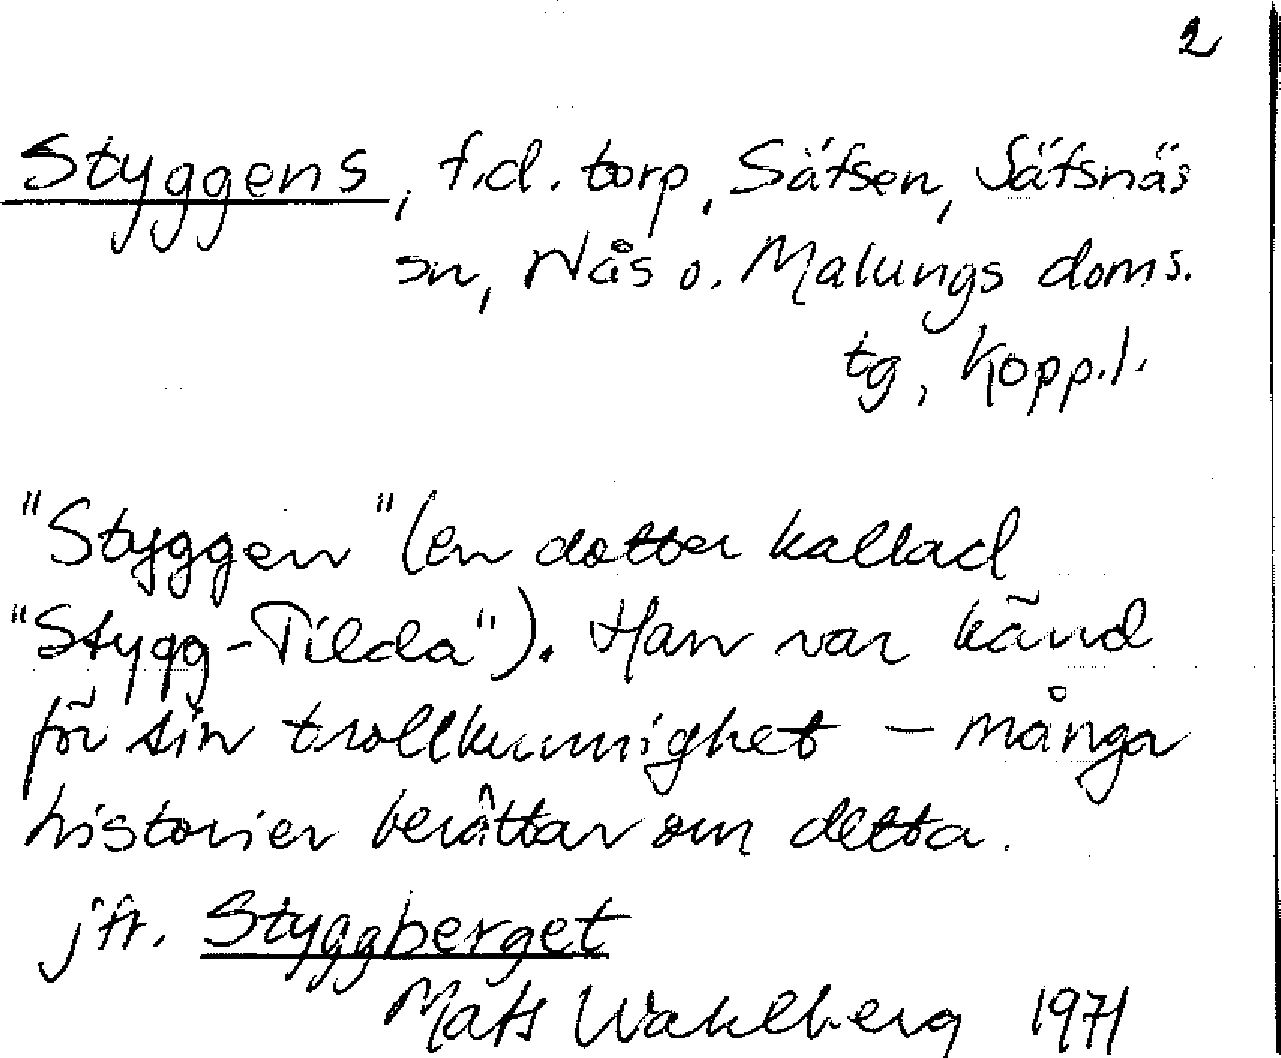 2
Styggens, f.d. torp, Säfsen, Säfsnäs
sn, Nås o. Malungs doms.
tg, Kopp.l.
"Styggen" (en dotter kallad
"Stygg-Tilda"). Han var känd
för sin trollkunnighet - många
historier berättar om detta.
jfr. Styggberget
Mats Wahlberg 1971